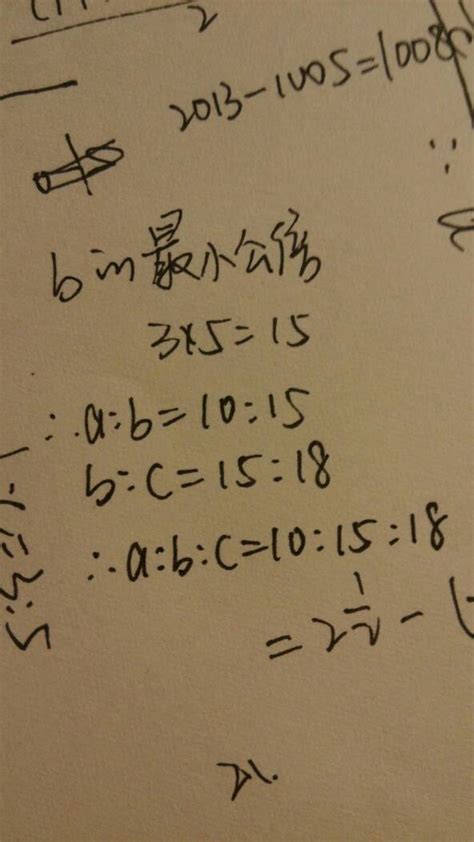 2
2013-1005=1008
b的最小公倍
3×5=15
∴a:b=10:15
b:c=15:18
∴a:b:c=10:15:18
=2 1/2 - (